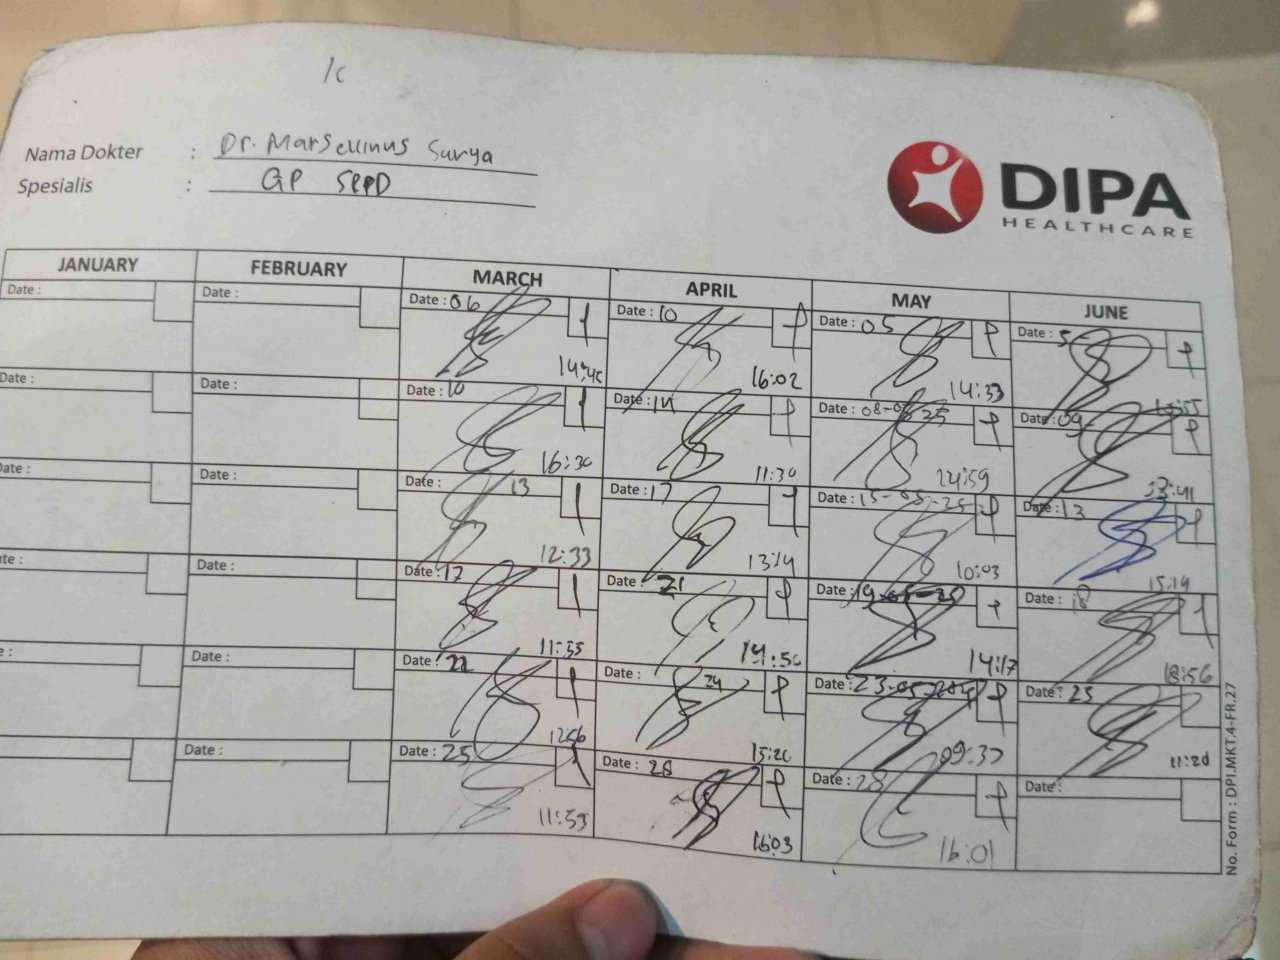 1c
Nama Dokter : Dr. Marsellinus Surya
Spesialis : GP SPPD
DIPA
HEALTHCARE
JANUARY FEBRUARY MARCH APRIL MAY JUNE
Date : Date : Date : 06 Date : 10 Date : 05 Date : 5
16:02 14:33
Date : Date : Date : 10 Date : 14 Date : 08-05-25 Date : 09
16:30 11:30 14:59
Date : Date : Date : 13 Date : 17 Date : 15-05-25 Date : 13
12:33 13:14 10:03 15:19
Date : Date : Date : 17 Date : 21 Date : 19-05-25 Date : 18
11:35 14:50 14:17 18:56
Date : Date : Date : 21 Date : 24 Date : 23-05- Date : 25
1256 15:20 09:37 11:20
Date : Date : Date : 25 Date : 28 Date : 28 Date :
11:53 16:03 16:01
No. Form : DPI.MKT.4-FR.27